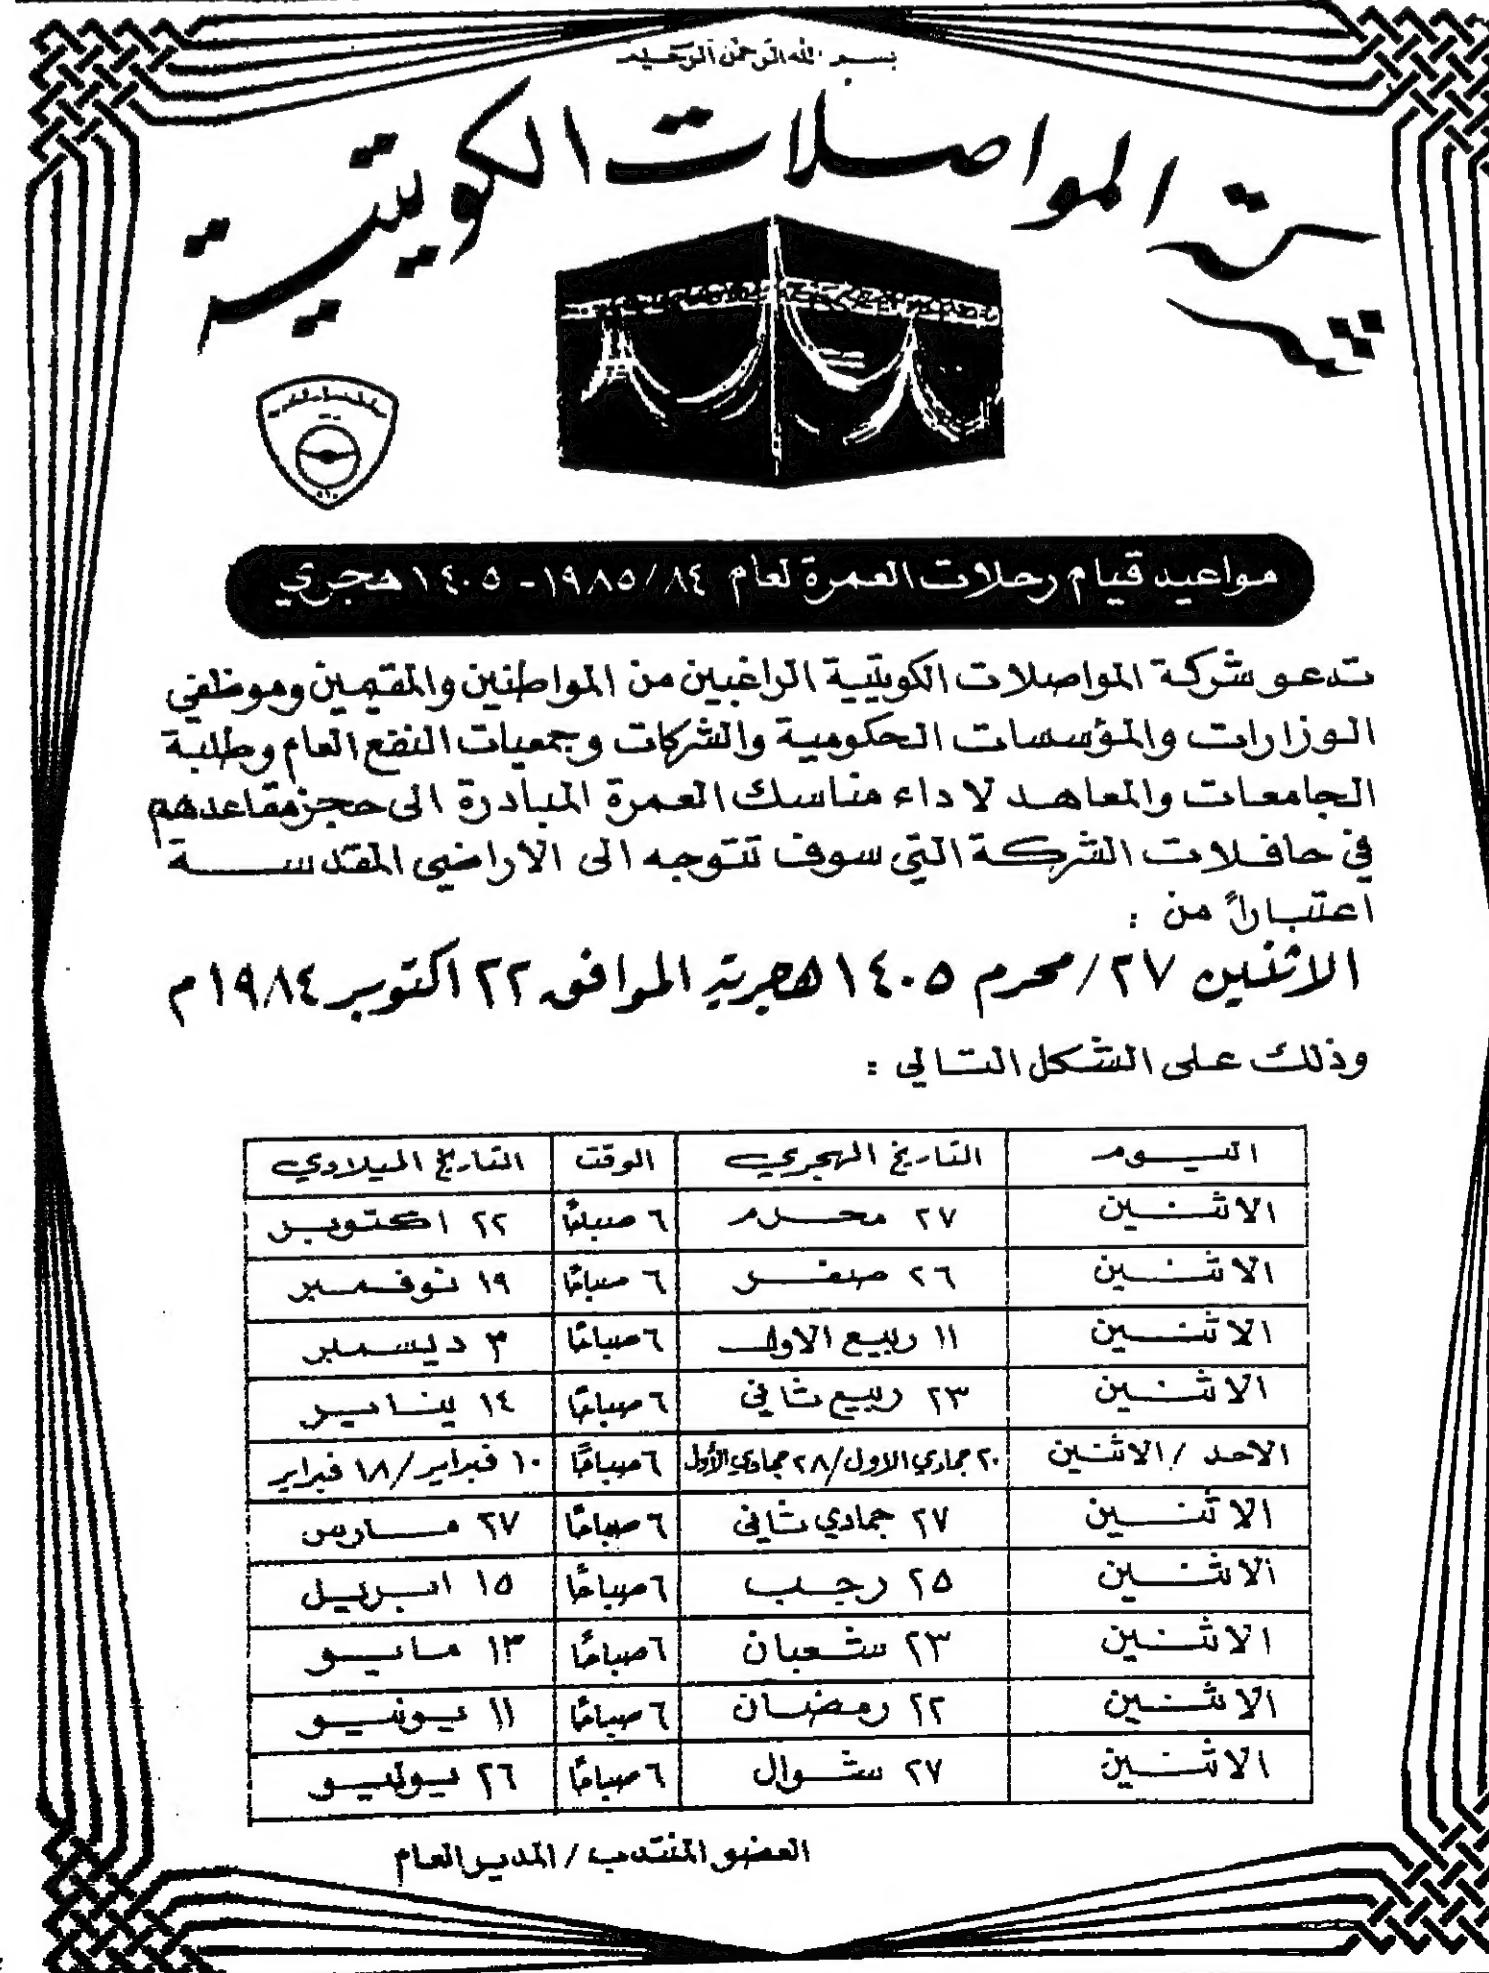 بسم الله الرحمن الرحيم
شركة المواصلات الكويتية
مواعيد قيام رحلات العمرة لعام ١٩٨٥/٨٤ - ١٤٠٥ هجري
تدعو شركة المواصلات الكويتية الراغبين من المواطنين والمقيمين وموظفي
الوزارات والمؤسسات الحكومية والشركات وجمعيات النفع العام وطلبة
الجامعات والمعاهد لاداء مناسك العمرة المبادرة الى حجز مقاعدهم
في حافلات الشركة التي سوف تتوجه الى الاراضي المقدسة
اعتباراً من :
الاثنين ٢٧/محرم ١٤٠٥ هجرية الموافق ٢٢ اكتوبر ١٩٨٤م
وذلك على الشكل التالي :
اليوم التاريخ الهجري الوقت التاريخ الميلادي
الاثنين ٢٧ محرم ٦ صباحًا ٢٢ اكتوبر
الاثنين ٢٦ صفر ٦ صباحًا ١٩ نوفمبر
الاثنين ١١ ربيع الاول ٦ صباحًا ٣ ديسمبر
الاثنين ٢٣ ربيع ثاني ٦ صباحًا ١٤ يناير
الاحد / الاثنين ٢٠ جمادي الاول/٢٨ جمادي الأول ٦ صباحًا ١٠ فبراير/١٨ فبراير
الاثنين ٢٧ جمادي ثاني ٦ صباحًا ٢٧ مارس
الاثنين ٢٥ رجب ٦ صباحًا ١٥ ابريل
الاثنين ٢٣ شعبان ٦ صباحًا ١٣ مايو
الاثنين ٢٢ رمضان ٦ صباحًا ١١ يونيو
الاثنين ٢٧ شوال ٦ صباحًا ٢٦ يوليو
العضو المنتدب / المدير العام